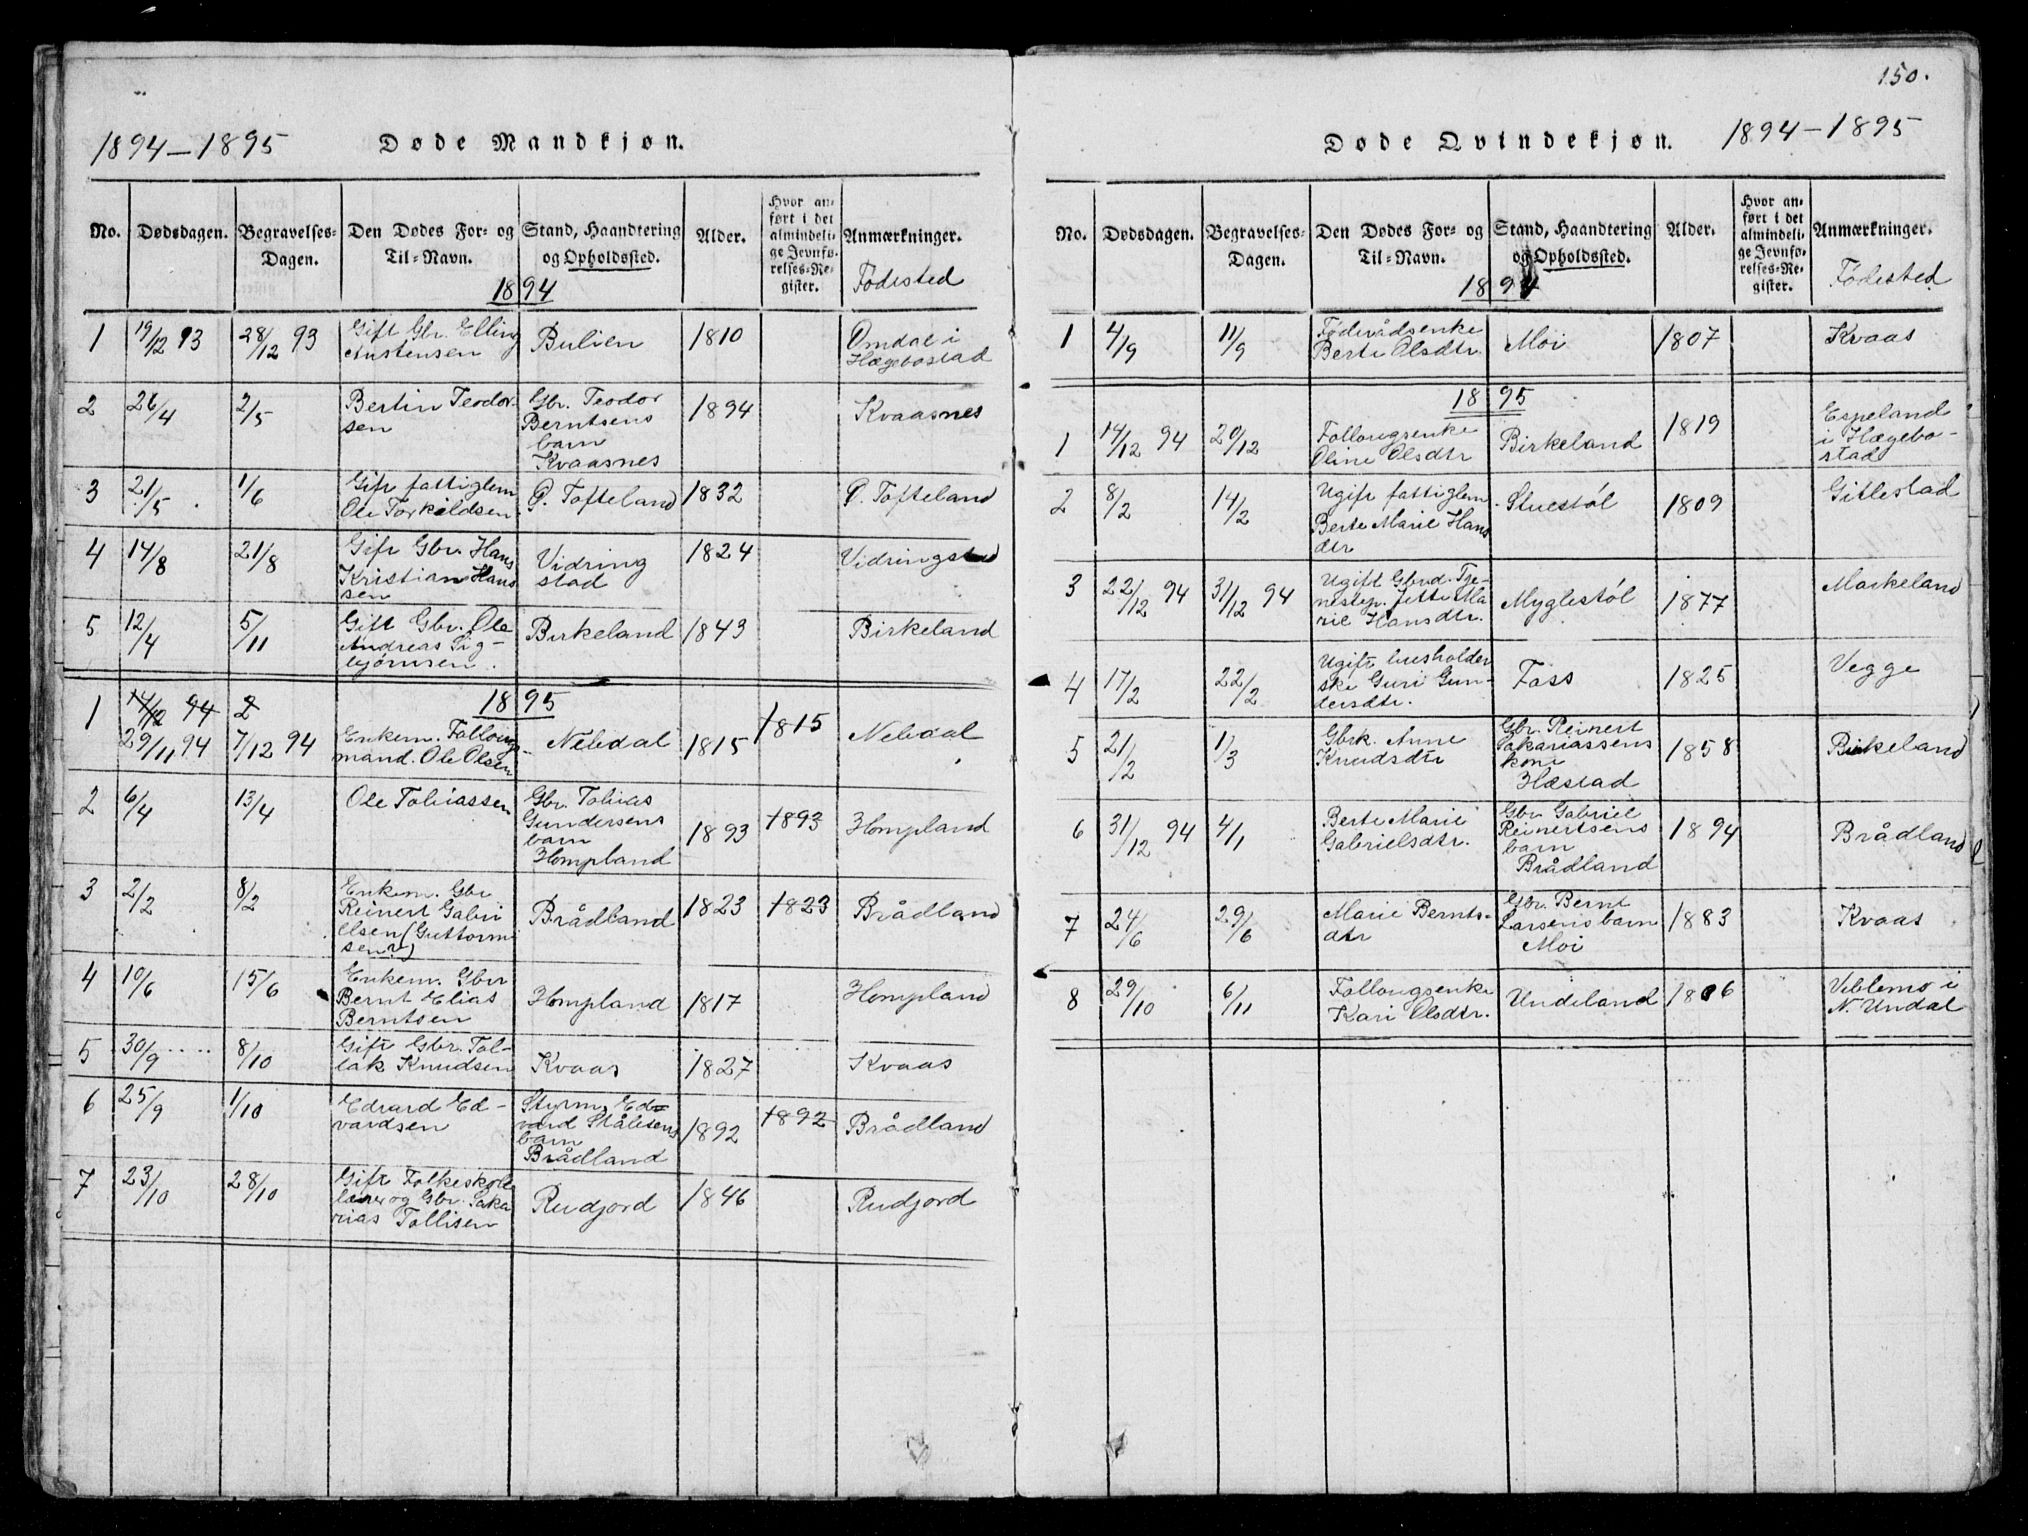 1894–1895 Døde Mandkjøn.
No. Dødsdagen. Begravelses-Dagen. Den Dødes For- og Til-Navn. Stand, Haandtering og Opholdssted. Alder. Hvor anført i det almindelige Jevnførelses-Register. Anmærkninger. Fødested
1894
1 19/12 93 28/12 93 Gift Gbr. Elling Austensen Bulien 1810 Omdal i Hægebostad
2 26/4 2/5 Bertin Teodorsen Gbr. Teodor Berntsens barn Kvaasnes 1894 Kvaasnes
3 21/5 1/6 Gift fattiglem Ole Torkildsen Ø. Tofteland 1832 Ø. Tofteland
4 14/8 21/8 Gift Gbr. Hans Kristian Hanssen Vidringstad 1824 Vidringstad
5 12/4 5/11 Gift Gbr. Ole Andreas Sigbjørnsen. Birkeland 1843 Birkeland
1895
1 14/12 94 2
29/11 94 7/12 94 Enkem. Follougsmand. Ole Olsen Nebdal 1815 1815 Nebdal
2 6/4 13/4 Ole Tobiassen Gbr. Tobias Gundersens barn Hompland 1893 1893 Hompland
3 2/2 8/2 Enkem. Gbr Reinert Gabrielsen (Guttormsen?) Brådland 1823 1823 Brådland
4 10/6 15/6 Enkem. Gbr Bernt Elias Berntsen Hompland 1817 Hompland
5 30/9 8/10 Gift Gbr. Tollak Knudsen Kvaas 1827 Kvaas
6 25/9 1/10 Edvard Edvardsen Styrm. Edvard Ståksens barn Brådland 1892 1892 Brådland
7 23/10 28/10 Gift Folkeskolelærer og Gbr. Sakarias Tollisen Rudjord 1846 Rudjord
150.
Døde Qvindekjøn. 1894–1895
No. Dødsdagen. Begravelses-Dagen. Den Dødes For- og Til-Navn. Stand, Haandtering og Opholdssted. Alder. Hvor anført i det almindelige Jevnførelses-Register. Anmærkninger. Fødested
1894
1 4/9 11/9 Føderådsenke Berte Olsdtr. Moi 1807 Kvaas
1895
1 14/12 94 20/12 Follougsenke Oline Olsdtr Birkeland 1819 Espeland i Hægebostad
2 8/2 14/2 Ugift fattiglem Berte Marie Hansdtr Stuestøl 1809 Gitlestad
3 22/12 94 31/12 94 Ugift Gbrd. Tjenestep. Jette Marie Hansdtr. Myglestøl 1877 Markeland
4 17/2 22/2 Ugift husholderske Guri Gundersdtr. Foss 1825 Vegge
5 21/2 1/3 Gbrk. Anne Knudsdtr Gbr. Reinert Sakariassens kone Hæstad 1858 Birkeland
6 31/12 94 4/1 Berte Marie Gabrielsdtr. Gbr Gabriel Reinertsens barn Brådland 1894 Brådland
7 24/6 29/6 Marie Berntsdtr Gbr. Bernt Larsens barn Moi 1883 Kvaas
8 29/10 6/11 Follougsenke Kari Olsdtr. Undeland 1806 Viblemo i N. Undal